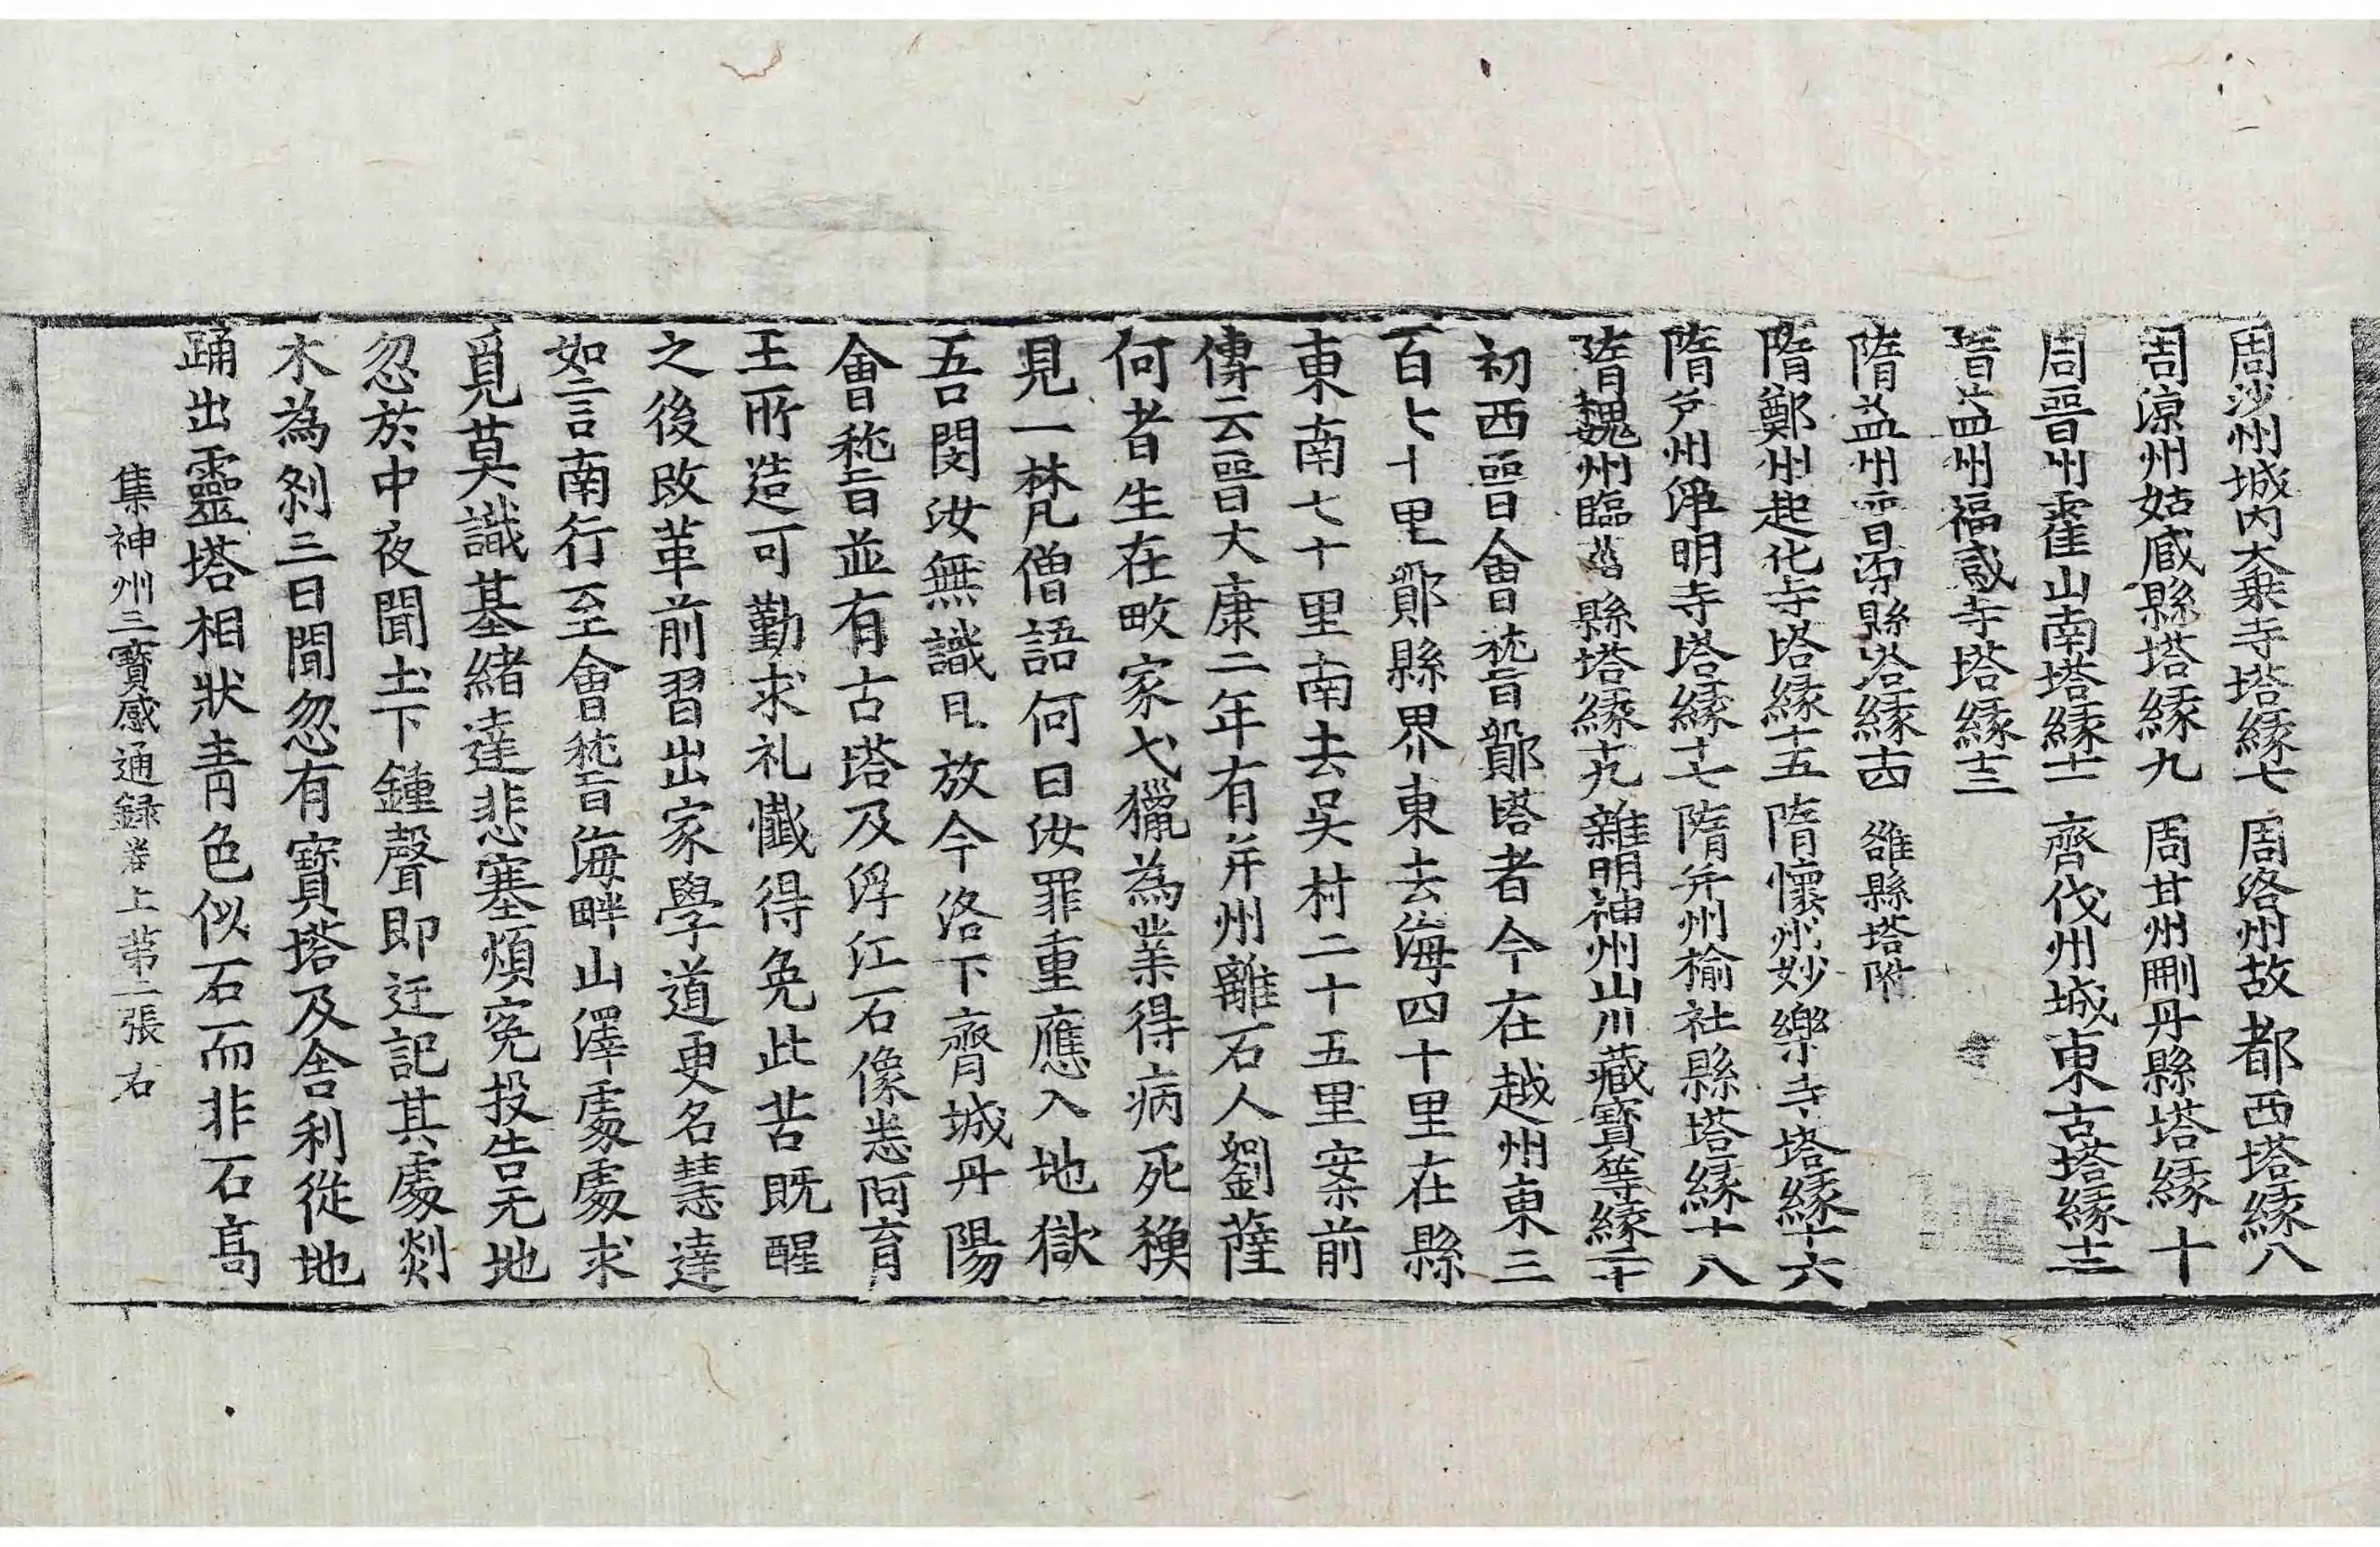 周沙州城內大乗寺塔緣七 周洛州故都西塔緣八
周涼州姑臧縣塔緣九 周甘州刪丹縣塔緣十
周晉州霍山南塔緣十一 齊伐州城東古塔緣十二
隋益州福感寺塔緣十三
隋益州晉源縣塔緣十四 雒縣塔附
隋鄭州起化寺塔緣十五 隋懷州妙樂寺塔緣十六
隋并州淨明寺塔緣十七 隋并州榆社縣塔緣十八
隋魏州臨黃縣塔緣十九 雜明神州山川藏寶等緣二十
初西晉會稽鄮塔者今在越州東三
百七十里鄮縣界東去海四十里在縣
東南七十里南去吳村二十五里案前
傳云晉大康二年有并州離石人劉薩
何者生在畋家弋獵為業得病死穌
見一梵僧語何曰汝罪重應入地獄
吾閔汝無識且放今洛下齊城丹陽
會稽並有古塔及浮江石像悉阿育
王所造可勤求礼懺得免此苦既醒
之後改革前習出家學道更名慧達
如言南行至會稽海畔山澤處處求
覓莫識基緒達悲塞煩冤投告无地
忽於中夜聞土下鍾聲即迂記其處剡
木為剎三日間忽有寶塔及舎利從地
踊出靈塔相狀青色似石而非石高
集神州三寶感通録卷上 苐二張 右